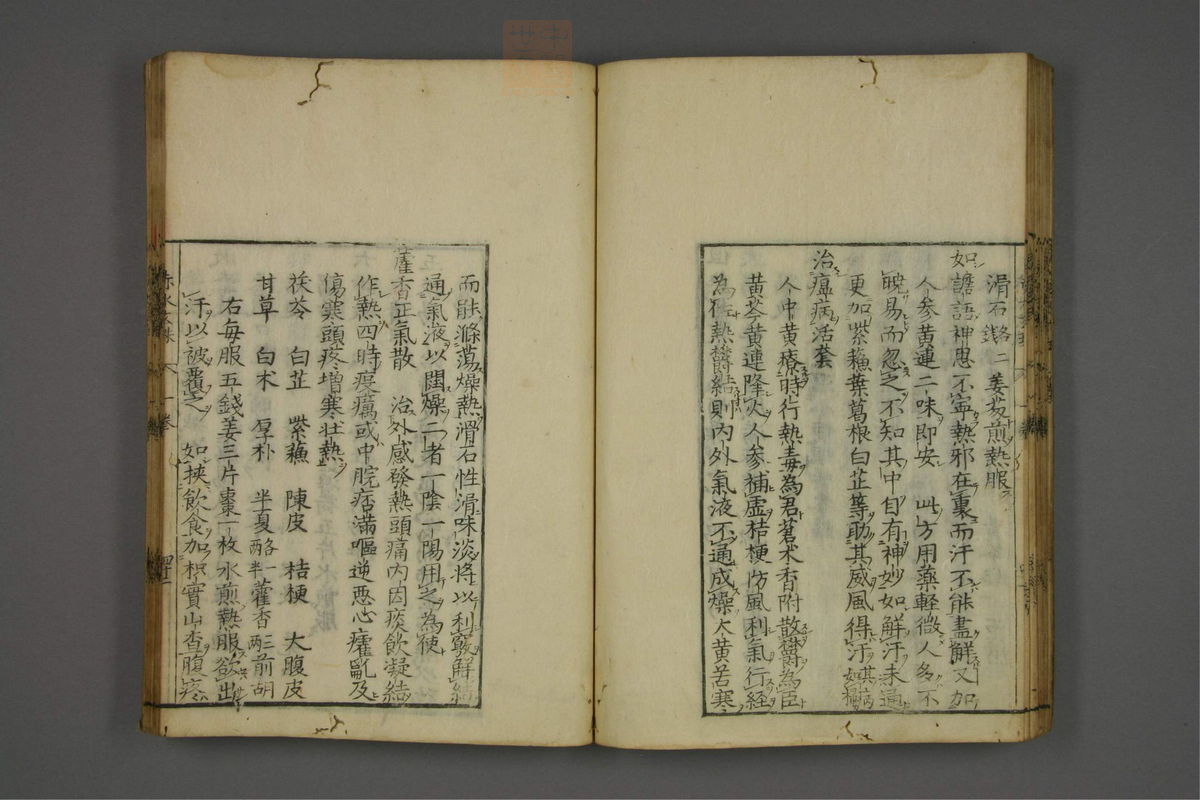 滑石 錢二 姜葱煎熱服
如譫語神思不寧熱邪在裏而汗不能盡解又加
人參黃連二味即安 此方用藥輕微人多不
曉易而忽之不知其中自有神妙如解汗未通
更加紫蘓葉葛根白芷等助其威風得汗其病
治瘟病活套
人中黃療時行熱毒為君蒼朮香附散欝為臣
黃芩黃連降火人參補虛桔梗防風利氣行経
為佐熱欝結則內外氣液不通成燥大黃苦寒
而能滌蕩燥熱滑石性滑味淡將以利竅解結
通氣液以闊燥二者一陰一陽用之為使
藿香正氣散 治外感發熱頭痛內因痰飲凝結
作熱四時疫癘或中脘痞滿嘔逆惡心癨亂及
傷寒頭疼增寒壯熱
茯苓 白芷 紫蘓 陳皮 桔梗 大腹皮
甘草 白朮 厚朴 半夏 各一兩半 藿香 三兩 前胡
右每服五錢姜三片棗一枚水煎熱服欲出
汗以被覆之 如挾飲食加枳實山查腹疼